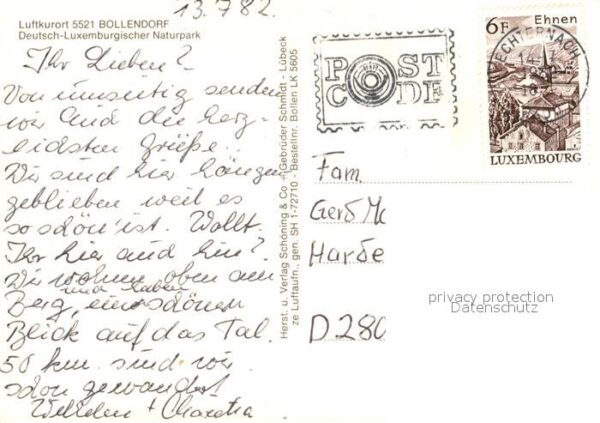 13.7.82.
Luftkurort 5521 BOLLENDORF
Deutsch-Luxemburgischer Naturpark
Ihr Lieben?
Von umseitig senden
wir Euch die herz-
lichsten Grüße.
Wir sind hier hängen
geblieben weil es
so schön ist. Wollt
Ihr hier auch hin?
Wir wohnen oben am
und haben
Berg, ein schönen
Blick auf das Tal.
50 km. sind wir
schon gewandert
Wilhelm +
Herst. u. Verlag Schöning & Co + Gebrüder Schmidt - Lübeck
ze Luftaufn., gen. SH 1-72710 - Bestellnr. Bollen LK 5605
POST
CODE
6F Ehnen
ECHTERNACH
LUXEMBOURG
Fam.
Gerd Mc
Harde
D 280
privacy protection
Datenschutz